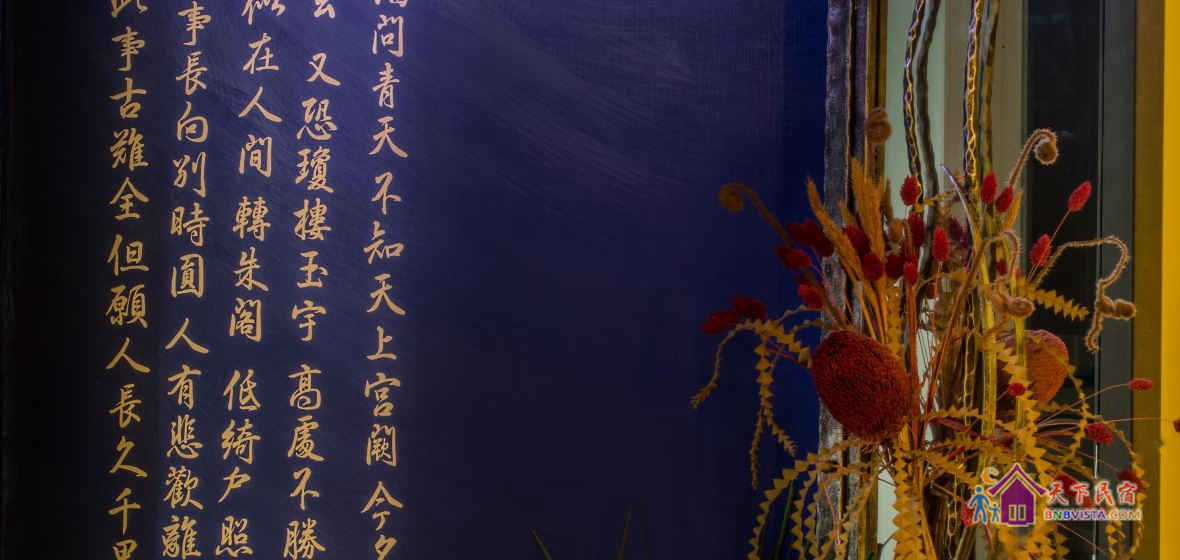 問青天不知天上宮闕今夕
又恐瓊樓玉宇高處不勝
在人間轉朱閣低綺戶照
事長向別時圓人有悲歡離
事古難全但願人長久千里
天下民宿
BNBVISTA.COM